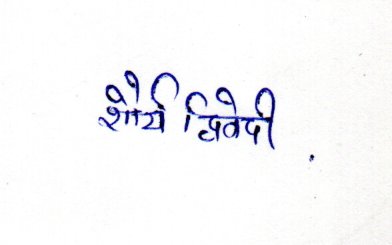 शौर्य द्विवेदी